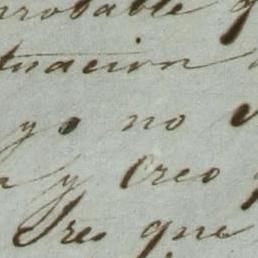 probable q
tuacion
yo no
y creo
tres que